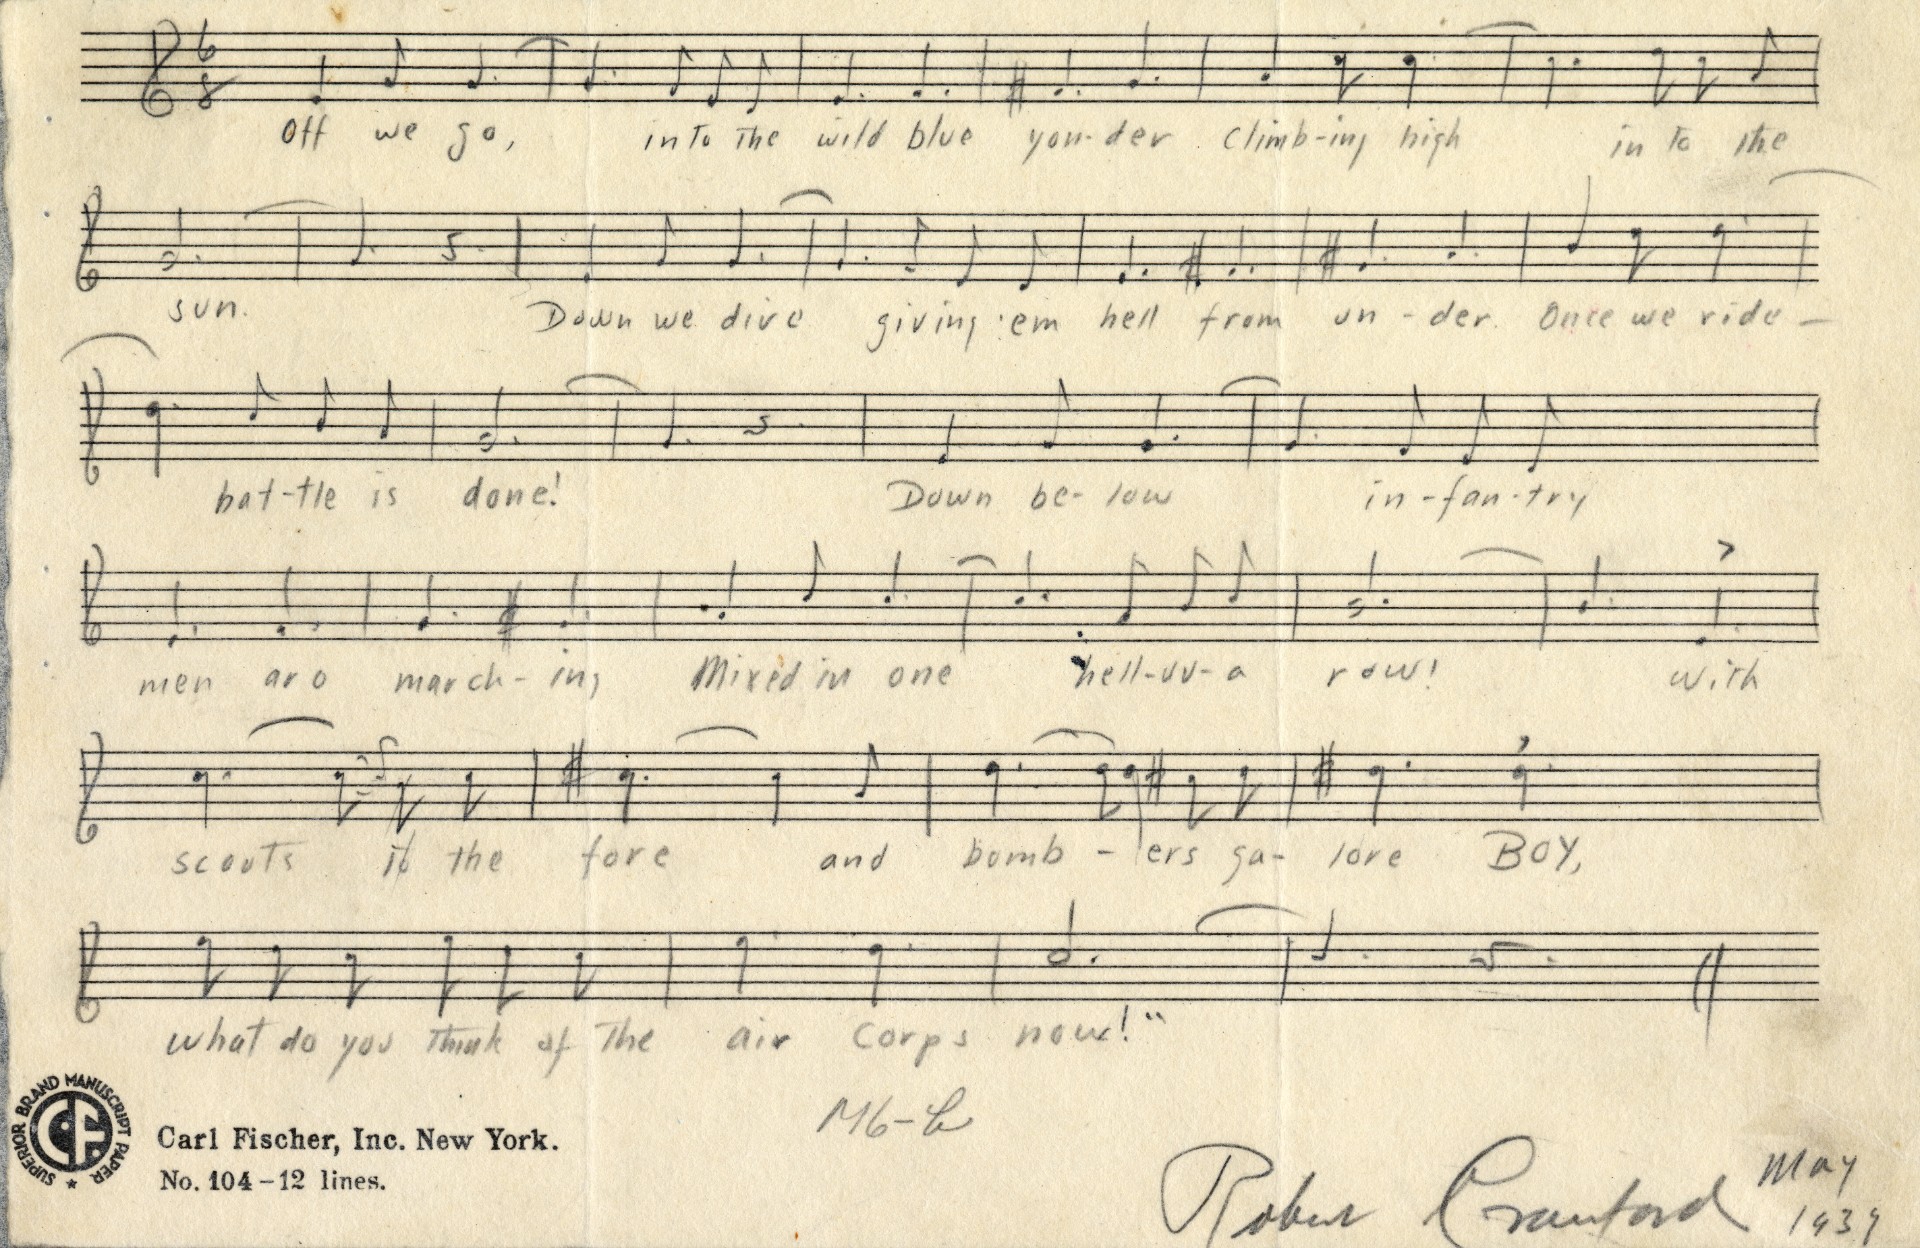 6
8
Off we go, into The wild blue yon-der climb-ing high in to the
sun. Down we dive giving 'em hell from un-der. Once we ride —
bat-tle is done! Down be-low in-fan-try
men are march-ing Mixed in one hell-uv-a row! with
scouts to the fore and bomb-ers ga-lore BOY,
what do you Think of The air Corps now!"
SUPERIOR BRAND MANUSCRIPT PAPER
CF
Carl Fischer, Inc. New York.
No. 104–12 lines.
Robert Crawford May
1939